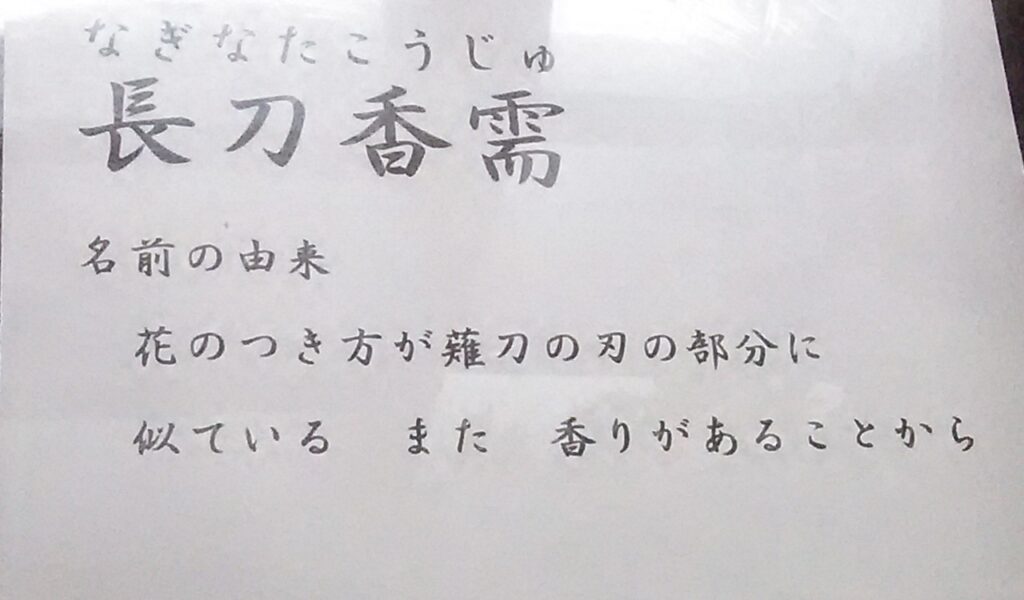 なぎなたこうじゅ
長刀香需
名前の由来
花のつき方が薙刀の刃の部分に
似ている　また　香りがあることから